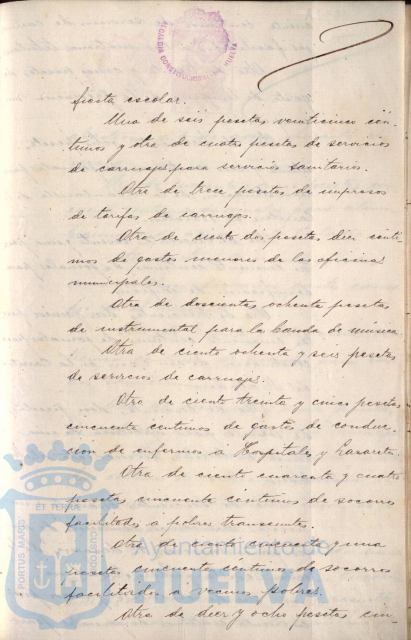 ALCALDIA CONSTITUCIONAL HUELVA
fiesta escolar.
Una de seis pesetas veinticinco cen-
timos y otra de cuatro pesetas de servicios
de carruajes para servicios sanitarios.
Otra de trece pesetas de impresos
de tarifas de carruajes.
Otra de ciento dos pesetas diez cénti-
mos de gastos menores de las oficinas
municipales.
Otra de doscientas ochenta pesetas
de instrumental para la banda de música
Otra de ciento ochenta y seis pesetas
de servicios de carruajes.
Otra de ciento treinta y cinco pesetas
cincuenta centimos de gastos de conduc-
cion de enfermos á Hospitales y Lazareto.
Otra de ciento cuarenta y cuatro
pesetas cincuenta centimos de socorros
facilitados a pobres transeuntes.
Otra de ciento cincuenta y una
pesetas cincuenta centimos de socorros
facilitados a vecinos pobres.
Otra de diez y ocho pesetas cin-
PORTUS MARIS ET TERRAE CUSTODIA
Ayuntamiento de
HUELVA